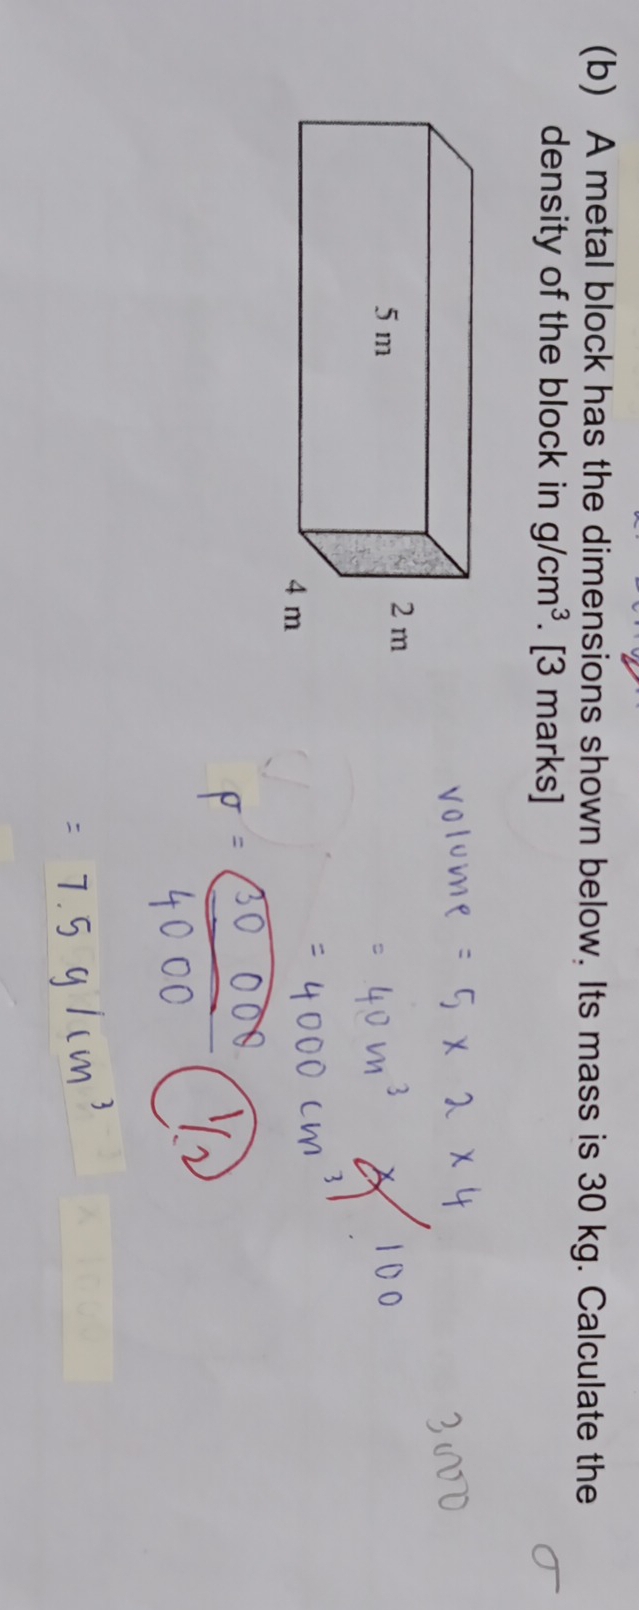 (b) A metal block has the dimensions shown below. Its mass is 30 kg. Calculate the
density of the block in g/cm³. [3 marks]
5 m
2 m
4 m
volume = 5 x 2 x 4
= 40 m³ x 100
= 4000 cm³
ρ = 30 000
4000
1/2
= 7.5 g/cm³